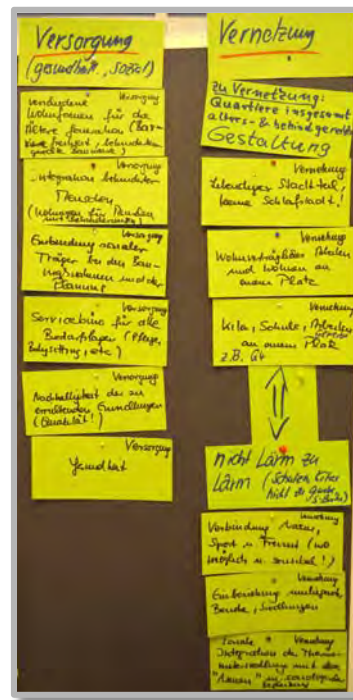 Versorgung
(gesundheit., sozial)
Versorgung
verschiedene
Wohnformen für die
Ältere Generation (Bar-
Versorgung
Integration behinderter
Menschen
(Wohnungen für Familien
mit Behinderung)
Versorgung
Einbindung sozialer
Träger bei den Bau-
maßnahmen und der
Planung
Versorgung
Servicebüro für alle
Bedarfslagen (Pflege,
Babysitting, etc)
Versorgung
Nachhaltigkeit der zu
errichtenden Einrichtungen
(Qualität!)
Versorgung
Vernetzung
zu Vernetzung:
Quartiere insgesamt
alters- & behind.gerechte
Gestaltung
Vernetzung
Lebendiger Stadtteil,
keine Schlafstadt!
Vernetzung
Wohnverträgliches Arbeiten
und Wohnen an
einem Platz
Vernetzung
Kita, Schule, Arbeiten
an einem Platz
z.B. G4
nicht Lärm zu
Lärm (Schulen, Kitas
nicht
Vernetzung
Verbindung Natur,
Sport u. Freizeit (wo
möglich u. sinnvoll!)
Vernetzung
Einbindung umliegende
Bende, Siedlungen
Vernetzung
Integration der
mit dem